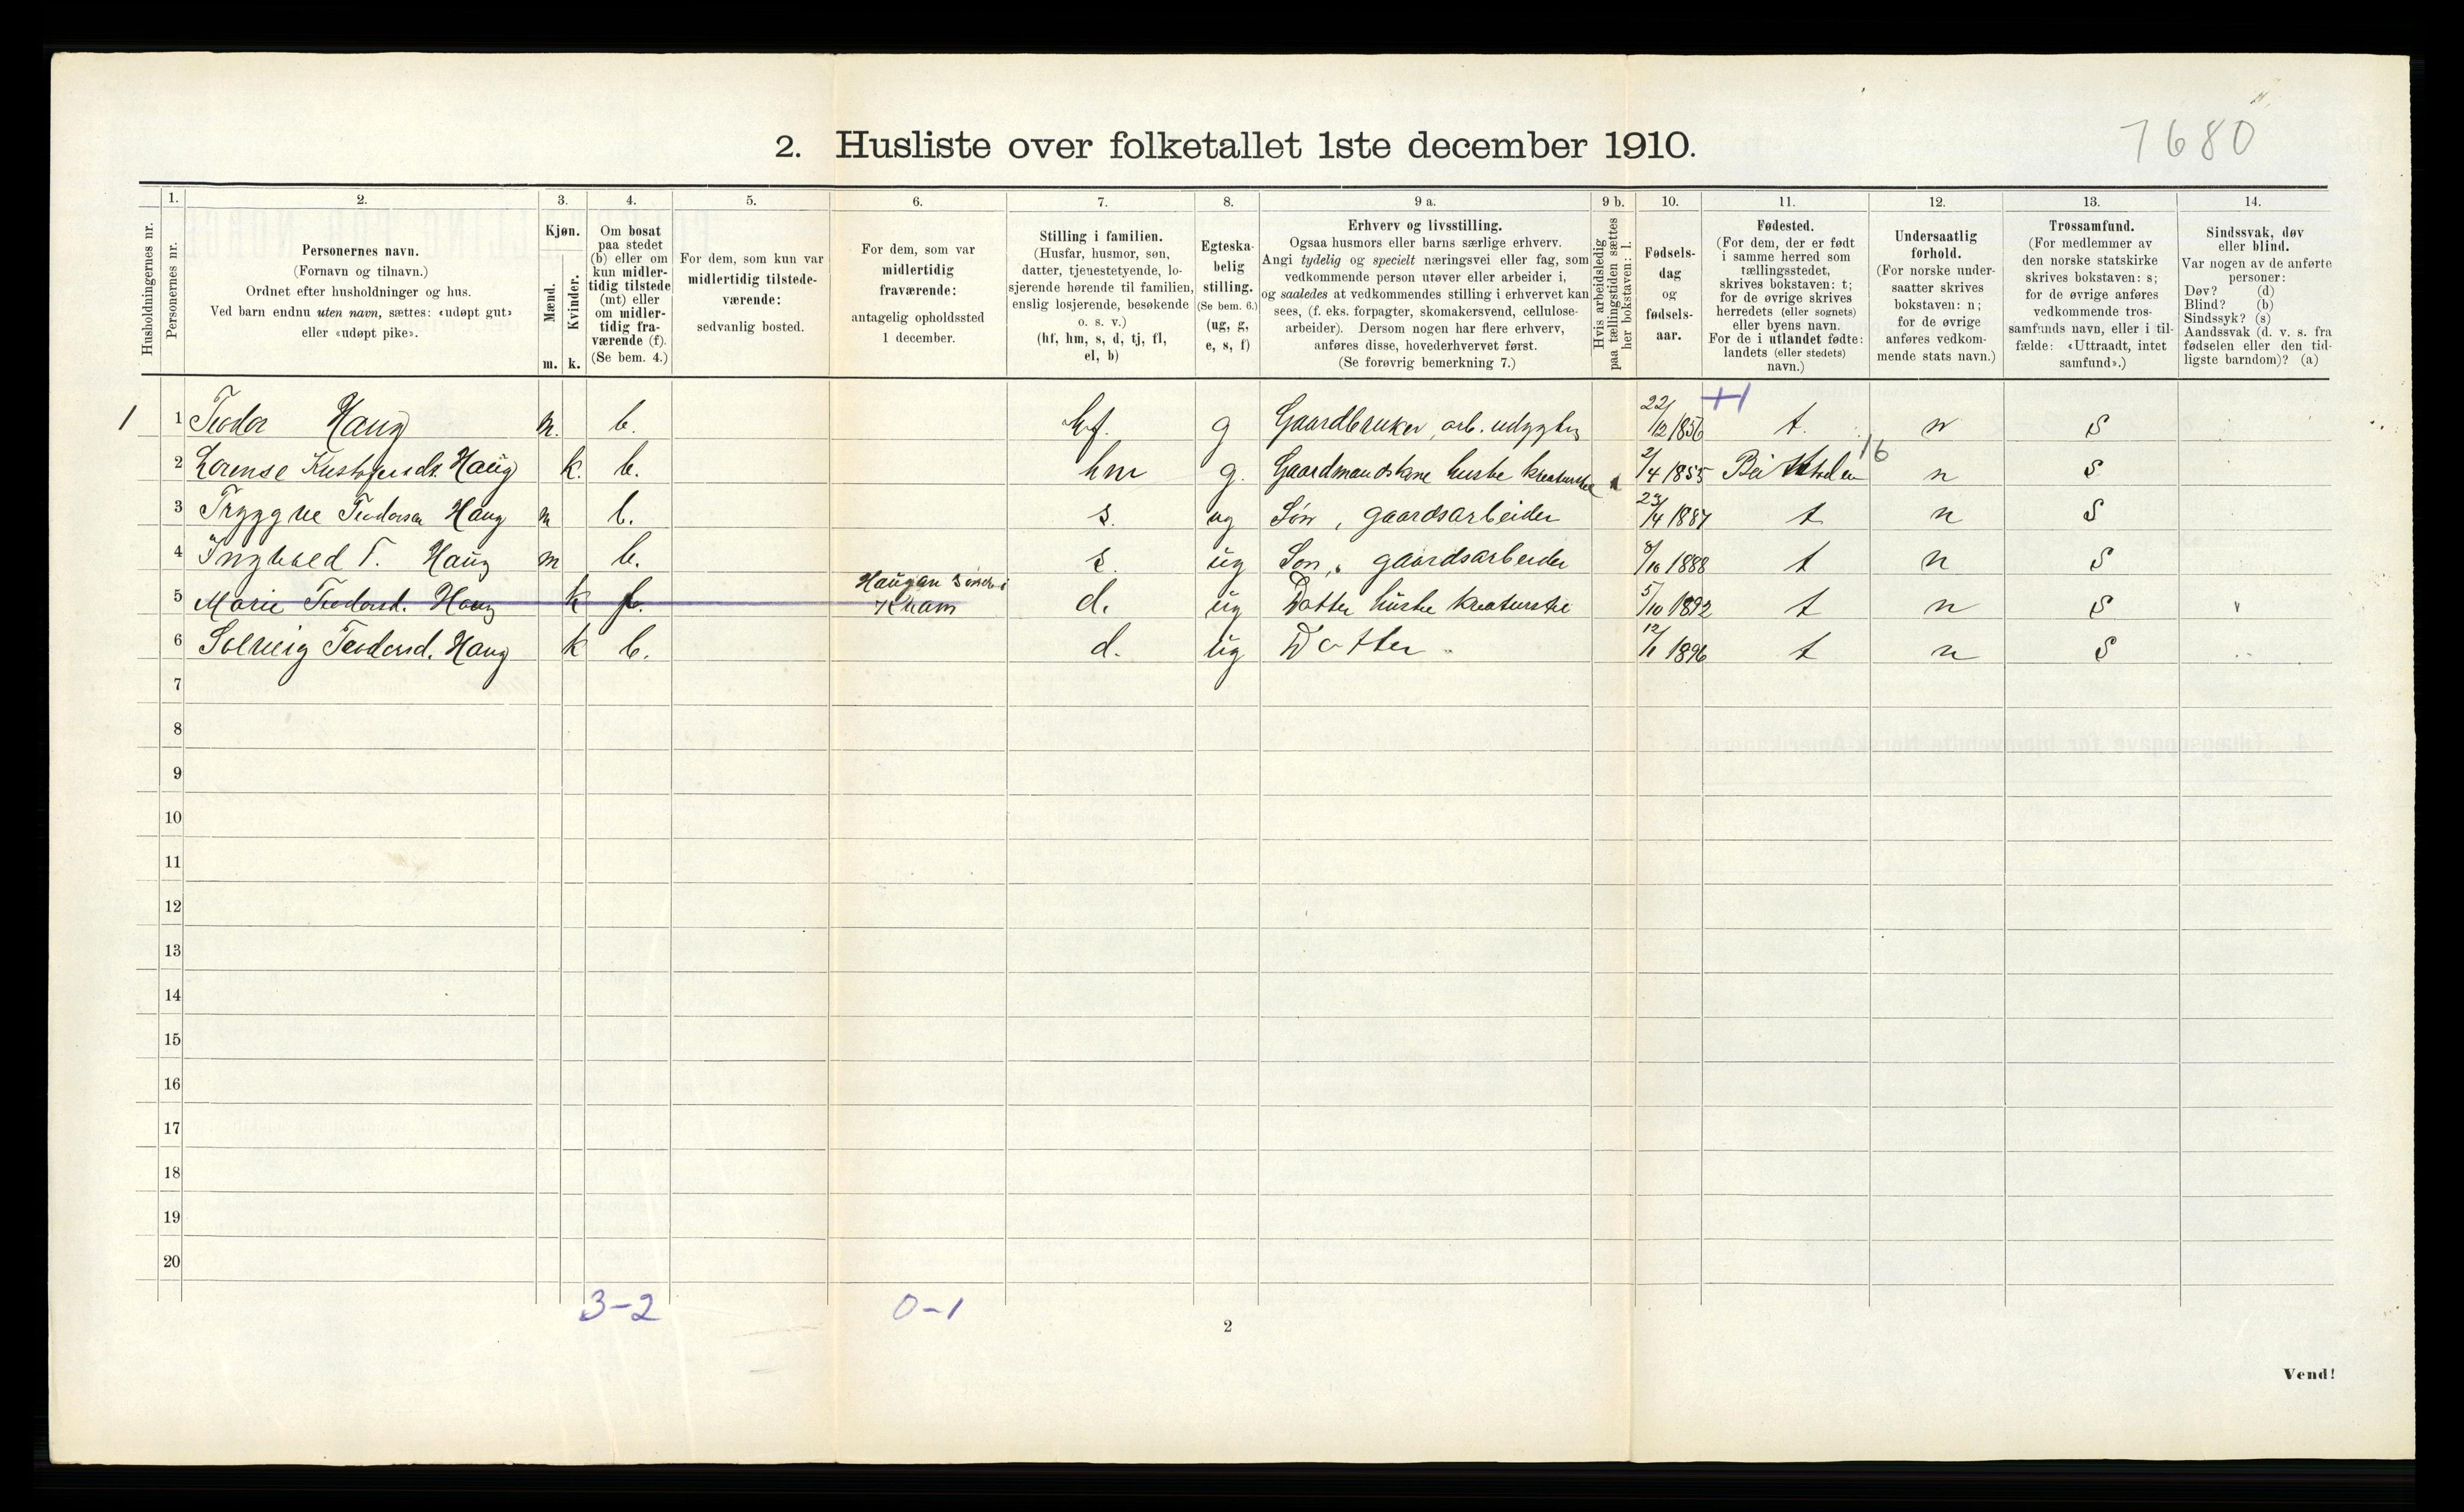 7680
2. Husliste over folketallet 1ste december 1910.
Husholdningernes nr.
1.
Personernes nr.
2.
Personernes navn.
(Fornavn og tilnavn.)
Ordnet efter husholdninger og hus.
Ved barn endnu uten navn, sættes: «udøpt gut»
eller «udøpt pike».
3.
Kjøn.
Mænd.
Kvinder.
m. k.
4.
Om bosat
paa stedet
(b) eller om
kun midler-
tidig tilstede
(mt) eller
om midler-
tidig fra-
værende (f).
(Se bem. 4.)
5.
For dem, som kun var
midlertidig tilstede-
værende:
sedvanlig bosted.
6.
For dem, som var
midlertidig
fraværende:
antagelig opholdssted
1 december.
7.
Stilling i familien.
(Husfar, husmor, søn,
datter, tjenestetyende, lo-
sjerende hørende til familien,
enslig losjerende, besøkende
o. s. v.)
(hf, hm, s, d, tj, fl,
el, b)
8.
Egteska-
belig
stilling.
(Se bem. 6.)
(ug, g,
e, s, f)
9 a.
Erhverv og livsstilling.
Ogsaa husmors eller barns særlige erhverv.
Angi tydelig og specielt næringsvei eller fag, som
vedkommende person utøver eller arbeider i,
og saaledes at vedkommendes stilling i erhvervet kan
sees, (f. eks. forpagter, skomakersvend, cellulose-
arbeider). Dersom nogen har flere erhverv,
anføres disse, hovederhvervet først.
(Se forøvrig bemerkning 7.)
9 b.
Hvis arbeidsledig
paa tællingstiden sættes
her bokstaven: l.
10.
Fødsels-
dag
og
fødsels-
aar.
11.
Fødested.
(For dem, der er født
i samme herred som
tællingsstedet,
skrives bokstaven: t;
for de øvrige skrives
herredets (eller sognets)
eller byens navn.
For de i utlandet fødte:
landets (eller stedets)
navn.)
12.
Undersaatlig
forhold.
(For norske under-
saatter skrives
bokstaven: n;
for de øvrige
anføres vedkom-
mende stats navn.)
13.
Trossamfund.
(For medlemmer av
den norske statskirke
skrives bokstaven: s;
for de øvrige anføres
vedkommende tros-
samfunds navn, eller i til-
fælde: «Uttraadt, intet
samfund».)
14.
Sindssvak, døv
eller blind.
Var nogen av de anførte
personer:
Døv? (d)
Blind? (b)
Sindssyk? (s)
Aandssvak (d. v. s. fra
fødselen eller den tid-
ligste barndom)? (a)
1 1 Teodor Haug m. b. hf. g Gaardbruker, arb. 22/12 1856 t. n S
2 Lorense Haug k. b. hm g. Gaardmandskone 2/4 1855 16 n S
3 Tryggve Teodorsen Haug m b. s. ug Søn, gaardsarbeider 23/4 1887 t n S
4 T. Haug m b. s. ug Søn, gaardsarbeider 8/10 1888 t n S
5 Marie Teodorsd. Haug k f. Haugan Kvam d. ug Datter 5/10 1892 t n S
6 Solveig Teodorsd. Haug k b. d. ug Datter 12/1 1896 t n S
7
8
9
10
11
12
13
14
15
16
17
18
19
20
3-2 0-1
2
Vend!